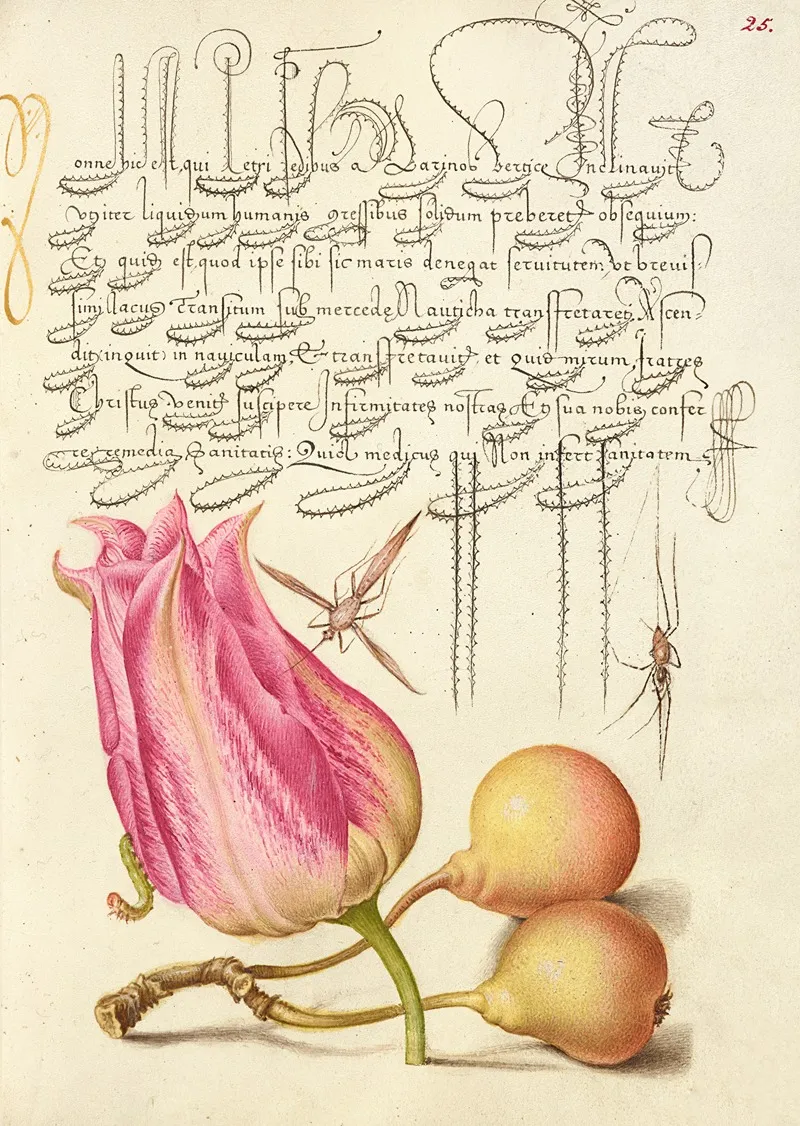 25.
onne hic est, qui Petri pedibus a Marinos vertice Inclinavit
Vt iter liquidum humanis gressibus solidum preberet obsequium:
Et quid est, quod ipse sibi sic maris denegat seruitutem, Vt breuis-
simi lacus Transitum sub mercede Nauticha transfretaret, Ascen-
dit, inquit, in nauiculam, & transfretauit, et Quid mirum, fratres
Christus venit suscipere Infirmitates nostras Et sua nobis confer
re remedia Sanitatis: Quid medicus qui Non infert sanitatem